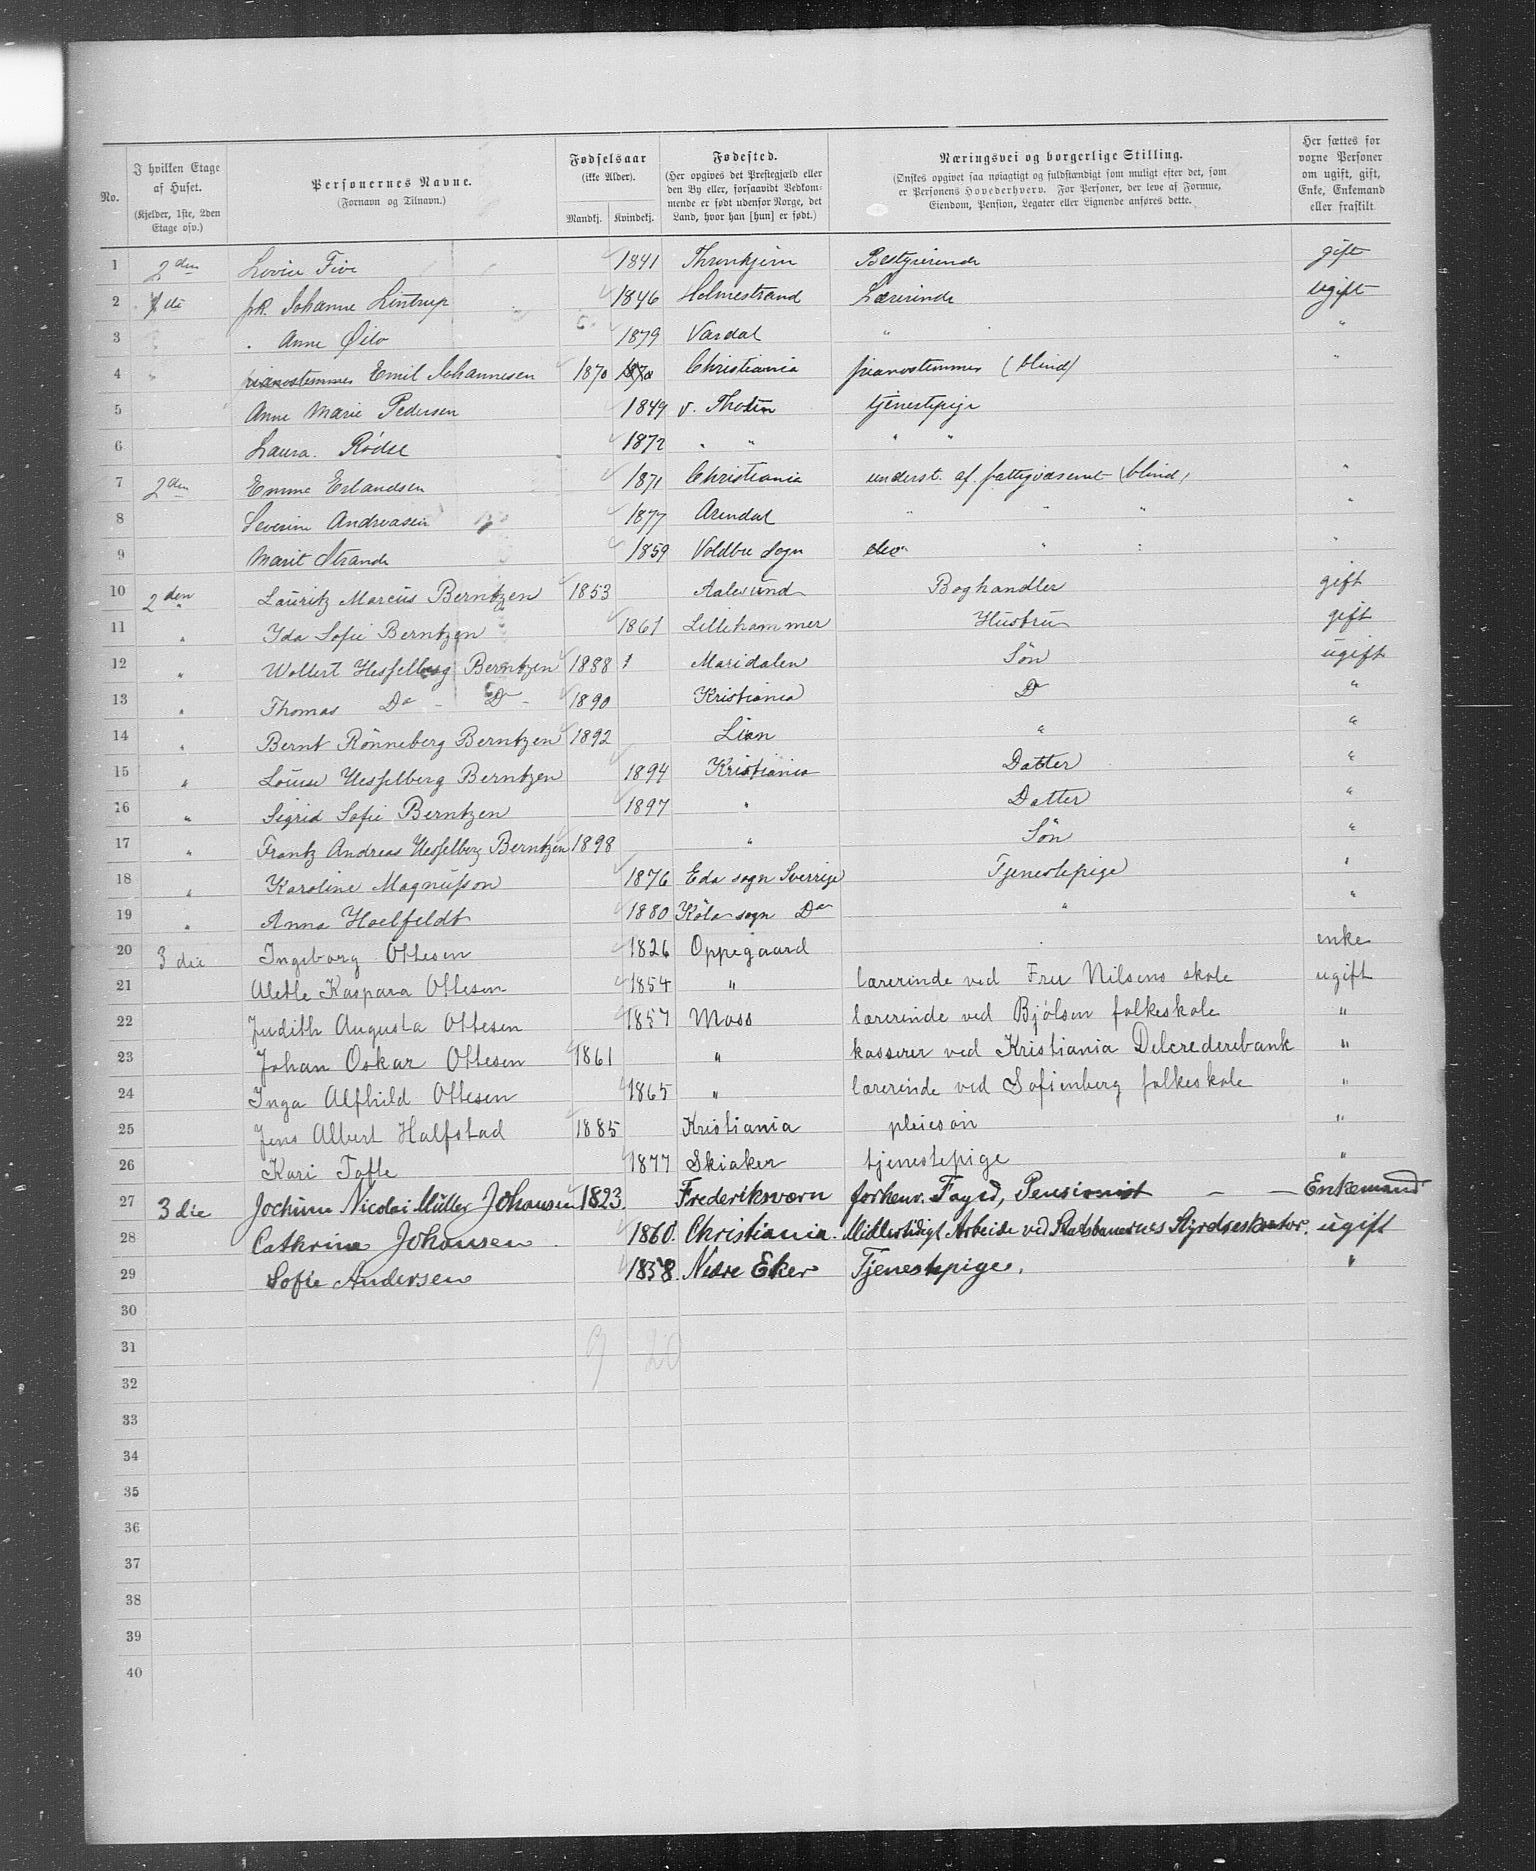 No.
I hvilken Etage af Huset. (Kjelder, 1ste, 2den Etage osv.)
Personernes Navne. (Fornavn og Tilnavn.)
Fødselsaar (ikke Alder). Mandkj. Kvindekj.
Fødested. (Her opgives det Prestegjæld eller den By eller, forsaavidt Vedkommende er født udenfor Norge, det Land, hvor han [hun] er født.)
Næringsvei og borgerlige Stilling. (Ønskes opgivet saa nøiagtigt og fuldstændigt som muligt efter det, som er Personens Hovederhverv. For Personer, der leve af Formue, Eiendom, Pension, Legater eller Lignende anføres dette.)
Her sættes for voxne Personer om ugift, gift, Enke, Enkemand eller fraskilt
1 2den Lovise Five 1841 Thronhjem Bestyrerinde gift
2 1ste frk. Johanne Lintrup 1846 Holmestrand Lærerinde ugift
3 " Anne Øilo 1879 Vardal " "
4 " pianostemmer Emil Johannesen 1870 1870 Christiania pianostemmer (blind) "
5 Anne Marie Pedersen 1849 v. Thoten tjenestepige
6 Laura Rödse 1872 " " " "
7 2den Emma Erlandsen 1871 Christiania underst. af fattigvæsenet (blind) "
8 Severine Andreasen 1877 Arendal " " " "
9 Marit Strande 1859 Voldbu Sogn elev " " "
10 2den " Lauritz Marcus Berntzen 1853 Aalesund Boghandler gift
11 " Ida Sofie Berntzen 1861 Lillehammer Hustru gift
12 " Wollert Hesselberg Berntzen 1888 Maridalen Sön ugift
13 " Thomas Do - Do - 1890 Kristiania Do "
14 " Bernt Rönneberg Berntzen 1892 Lian " "
15 " Louise Hesselberg Berntzen 1894 Kristiania Datter "
16 " Sigrid Sofie Berntzen 1897 " Datter "
17 " Frantz Andreas Hesselberg Berntzen 1898 " Sön "
18 " Karoline Magnusson 1876 Eda sogn Sverrige Tjenestepige "
19 " Anna Hoelfeldt 1880 Köla sogn Do " "
20 3die Ingeborg Ottesen 1826 Oppegaard enke
21 Alette Kaspara Ottesen 1854 " lærerinde ved Fru Nilsens skole ugift
22 Judith Augusta Ottesen 1857 Moss lærerinde ved Bjölsen folkeskole "
23 Johan Oskar Ottesen 1861 " kasserer ved Kristiania Delcrederebank "
24 Inga Alfhild Ottesen 1865 " lærerinde ved Sofienberg folkeskole "
25 Jens Albert Halfstad 1885 Kristiania pleiesön "
26 Kari Tofte 1877 Skiaker tjenestepige "
27 3die Jochum Nicolai Müller Johansen 1823. Frederiksværn forhenv. Foged, Pensionist — — Enkemand
28 Cathrine Johansen 1860. Christiania. Midlertidigt Arbeide ved Statsbanernes Styrelseskontor. ugift
29 Sofie Andersen 1858. Nedre Eker Tjenestepige. "
30
31 9 20
32
33
34
35
36
37
38
39
40